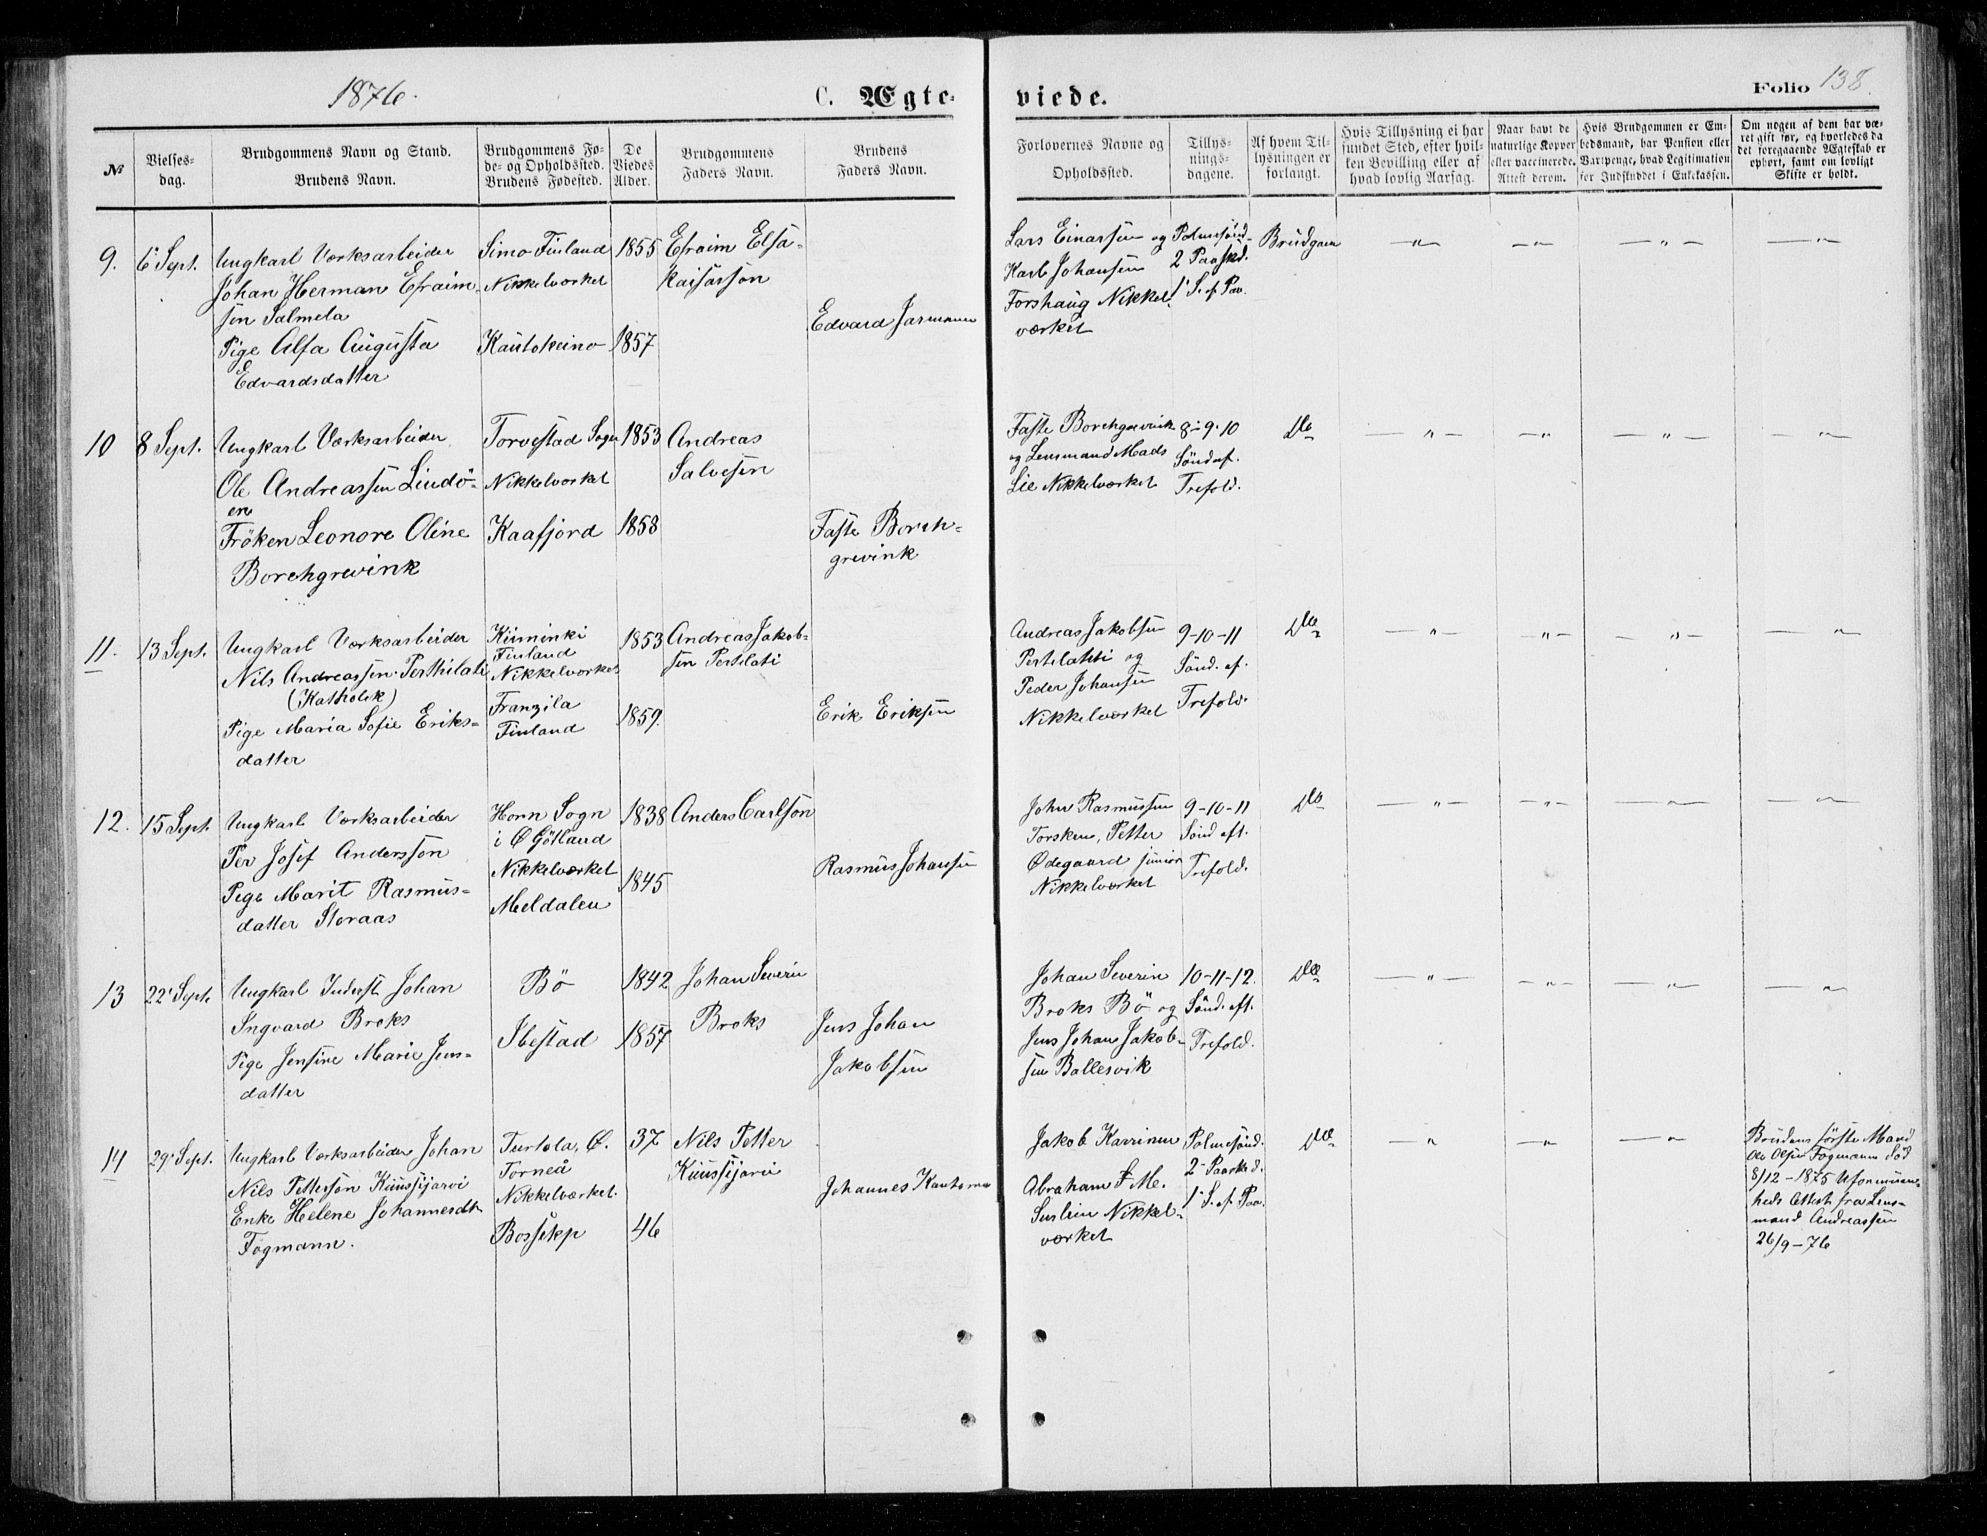 1876.
C. Ægte-
viede.
Folio 138.
№
Vielses-
dag.
Brudgommens Navn og Stand.
Brudens Navn.
Brudgommens Fø-
de- og Opholdssted.
Brudens Fødested.
De
Viedes
Alder.
Brudgommens
Faders Navn.
Brudens
Faders Navn.
Forlovernes Navne og
Opholdssted.
Tillys-
nings-
dagene.
Af hvem Til-
lysningen er
forlangt.
Hvis Tillysning ei har
fundet Sted, efter hvil-
ken Bevilling eller af
hvad lovlig Aarsag.
Naar havt de
naturlige Kopper
eller vaccinerede.
Attest derom.
Hvis Brudgommen er Em-
bedsmand, har Pension eller
Vartpenge, hvad Legitimation
for Indskuddet i Enkekassen.
Om nogen af dem har væ-
ret gift før, og hvorledes da
det foregaaende Ægteskab er
ophørt, samt om lovligt
Skifte er holdt.
9.
6 Sept.
Ungkarl Værksarbeider
Johan Herman Efraim-
sen Salmela
Pige Alfa Augusta
Edvardsdatter
Simo Finland
Nikkelværket
Kautokeino
1855
1857
Efraim Elsa-
kaisasson
Edvard Jarmann
Lars Einarsen og
Karl Johansen
Forshaug Nikkel-
værket
Palmesønd-
2 Paaskd.
1 S. ef. Paa.
Brudgom
— " —
— " —
— " —
— " —
10
8 Sept.
Ungkarl Værksarbeider
Ole Andreassen Lindö-
en
Fröken Leonore Oline
Borchgrevink
Torvestad Sogn
Nikkelværket
Kaafjord
1853
1858
Andreas
Salvesen
Faste Borch-
grevink
Faste Borchgrevink
og Lensmand Mads
Lie Nikkelværket
8-9-10
Sönd af.
Trefold.
Do
— " —
— " —
— " —
— " —
11.
13 Sept.
Ungkarl Værksarbeider
Nils Andreassen Perthilati
(Katholik)
Pige Maria Sofie Eriks-
datter
Kiiminki
Finland
Nikkelværket
Franzila
Finland
1853
1859.
Andreas Jakob-
sen Pertilati
Erik Eriksen
Andreas Jakobsen
Pertilahti og
Peder Johansen
Nikkelværket
9-10-11
Sönd. ef.
Trefold.
Do
— " —
— " —
— " —
— " —
12.
15 Sept.
Ungkarl Værksarbeider
Per Josef Andersson
Pige Marit Rasmus-
datter Storaas
Horn Sogn
i Ø Götland
Nikkelværket
Meldalen
1838
1845
Anders Carlson
Rasmus Johansen
John Rasmussen
Torsken, Petter
Ødegaard junior
Nikkelværket
9-10-11
Sönd eft.
Trefold.
Do
— " —
— " —
— " —
— " —
13
22 Sept.
Ungkarl Inderst Johan
Ingvard Broks
Pige Jensine Marie Jens-
datter
Bö
Ibestad
1842
1857
Johan Severin
Broks
Jens Johan
Jakobsen
Johan Severin
Broks Bö og
Jens Johan Jakob-
sen Ballesvik
10-11-12.
Sönd. eft.
Trefold.
Do
— " —
— " —
— " —
— " —
14
29 Sept.
Ungkarl Værksarbeider Johan
Nils Petterson Kuusijarvi
Enke Helene Johannesdtr
Fogmann.
Turtola, Ø.
Torneå
Nikkelværket.
Bossekop
37
46
Nils Petter
Kuusijarvi
Johannes
Jakob Karrinen
Abraham
Nikkel-
værket
Palmesönd.
2 Paaskd.
1 S. ef. Paa.
Do
— " —
— " —
— " —
Brudens første Mand
Ole Olsen Fogmann död
8/12-1875 Uformuen-
heds Attest fra Lens-
mand Andreassen
26/9-76